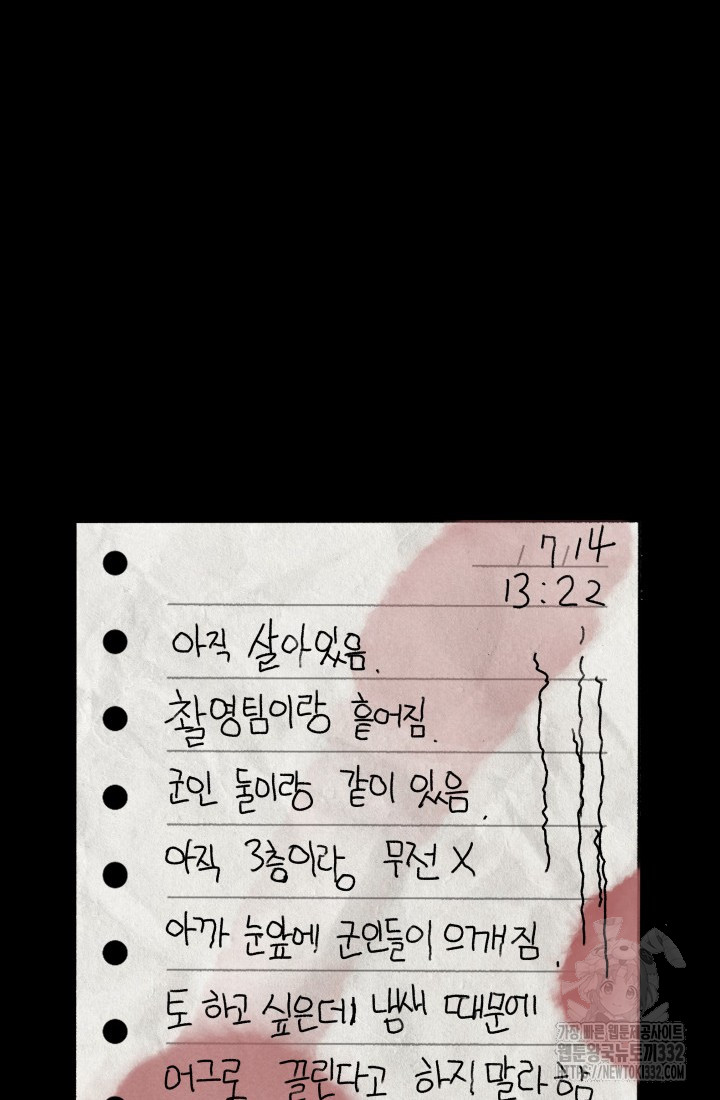 / 7/14
13:22
아직 살아있음.
촬영팀이랑 흩어짐.
군인 둘이랑 같이 있음.
아직 3층이랑 무전 X
아까 눈앞에 군인들이 으깨짐.
토 하고 싶은데 냄새 때문에
어그로 끌린다고 하지말라 함
가장 빠른 웹툰제공사이트
웹툰왕국뉴토끼332
HTTPS://NEWTOKI332.COM